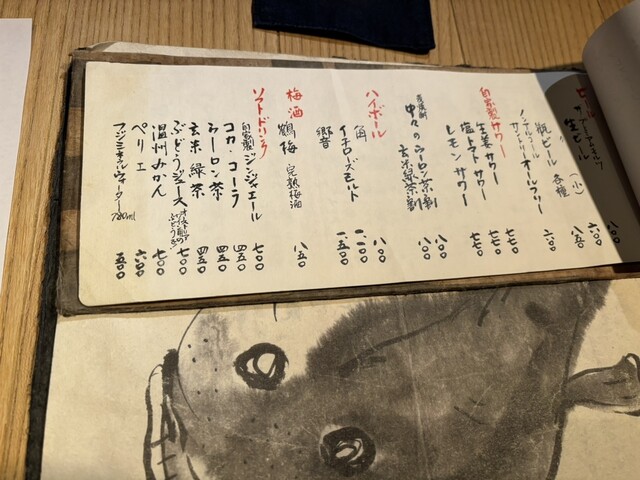 ビール
生ビール
(小)
瓶ビール 各種
ノンアルコール
サントリー オールフリー 六〇〇
自家製サワー
生姜サワー 七七〇
塩トマトサワー 七七〇
レモンサワー 七七〇
中々のウーロン茶割 八〇〇
玄米緑茶割 八〇〇
ハイボール
角 八〇〇
イチローズモルト
響 一、五〇〇
梅酒
鶴梅 完熟梅酒 八五〇
ソフトドリンク
自家製ジンジャエール 七〇〇
コカ・コーラ 四五〇
ウーロン茶 四五〇
玄米緑茶 四五〇
ぶどうジュース 七〇〇
温州みかん 七〇〇
ペリエ 六〇〇
フジミネラルウォーター 780ml 五〇〇